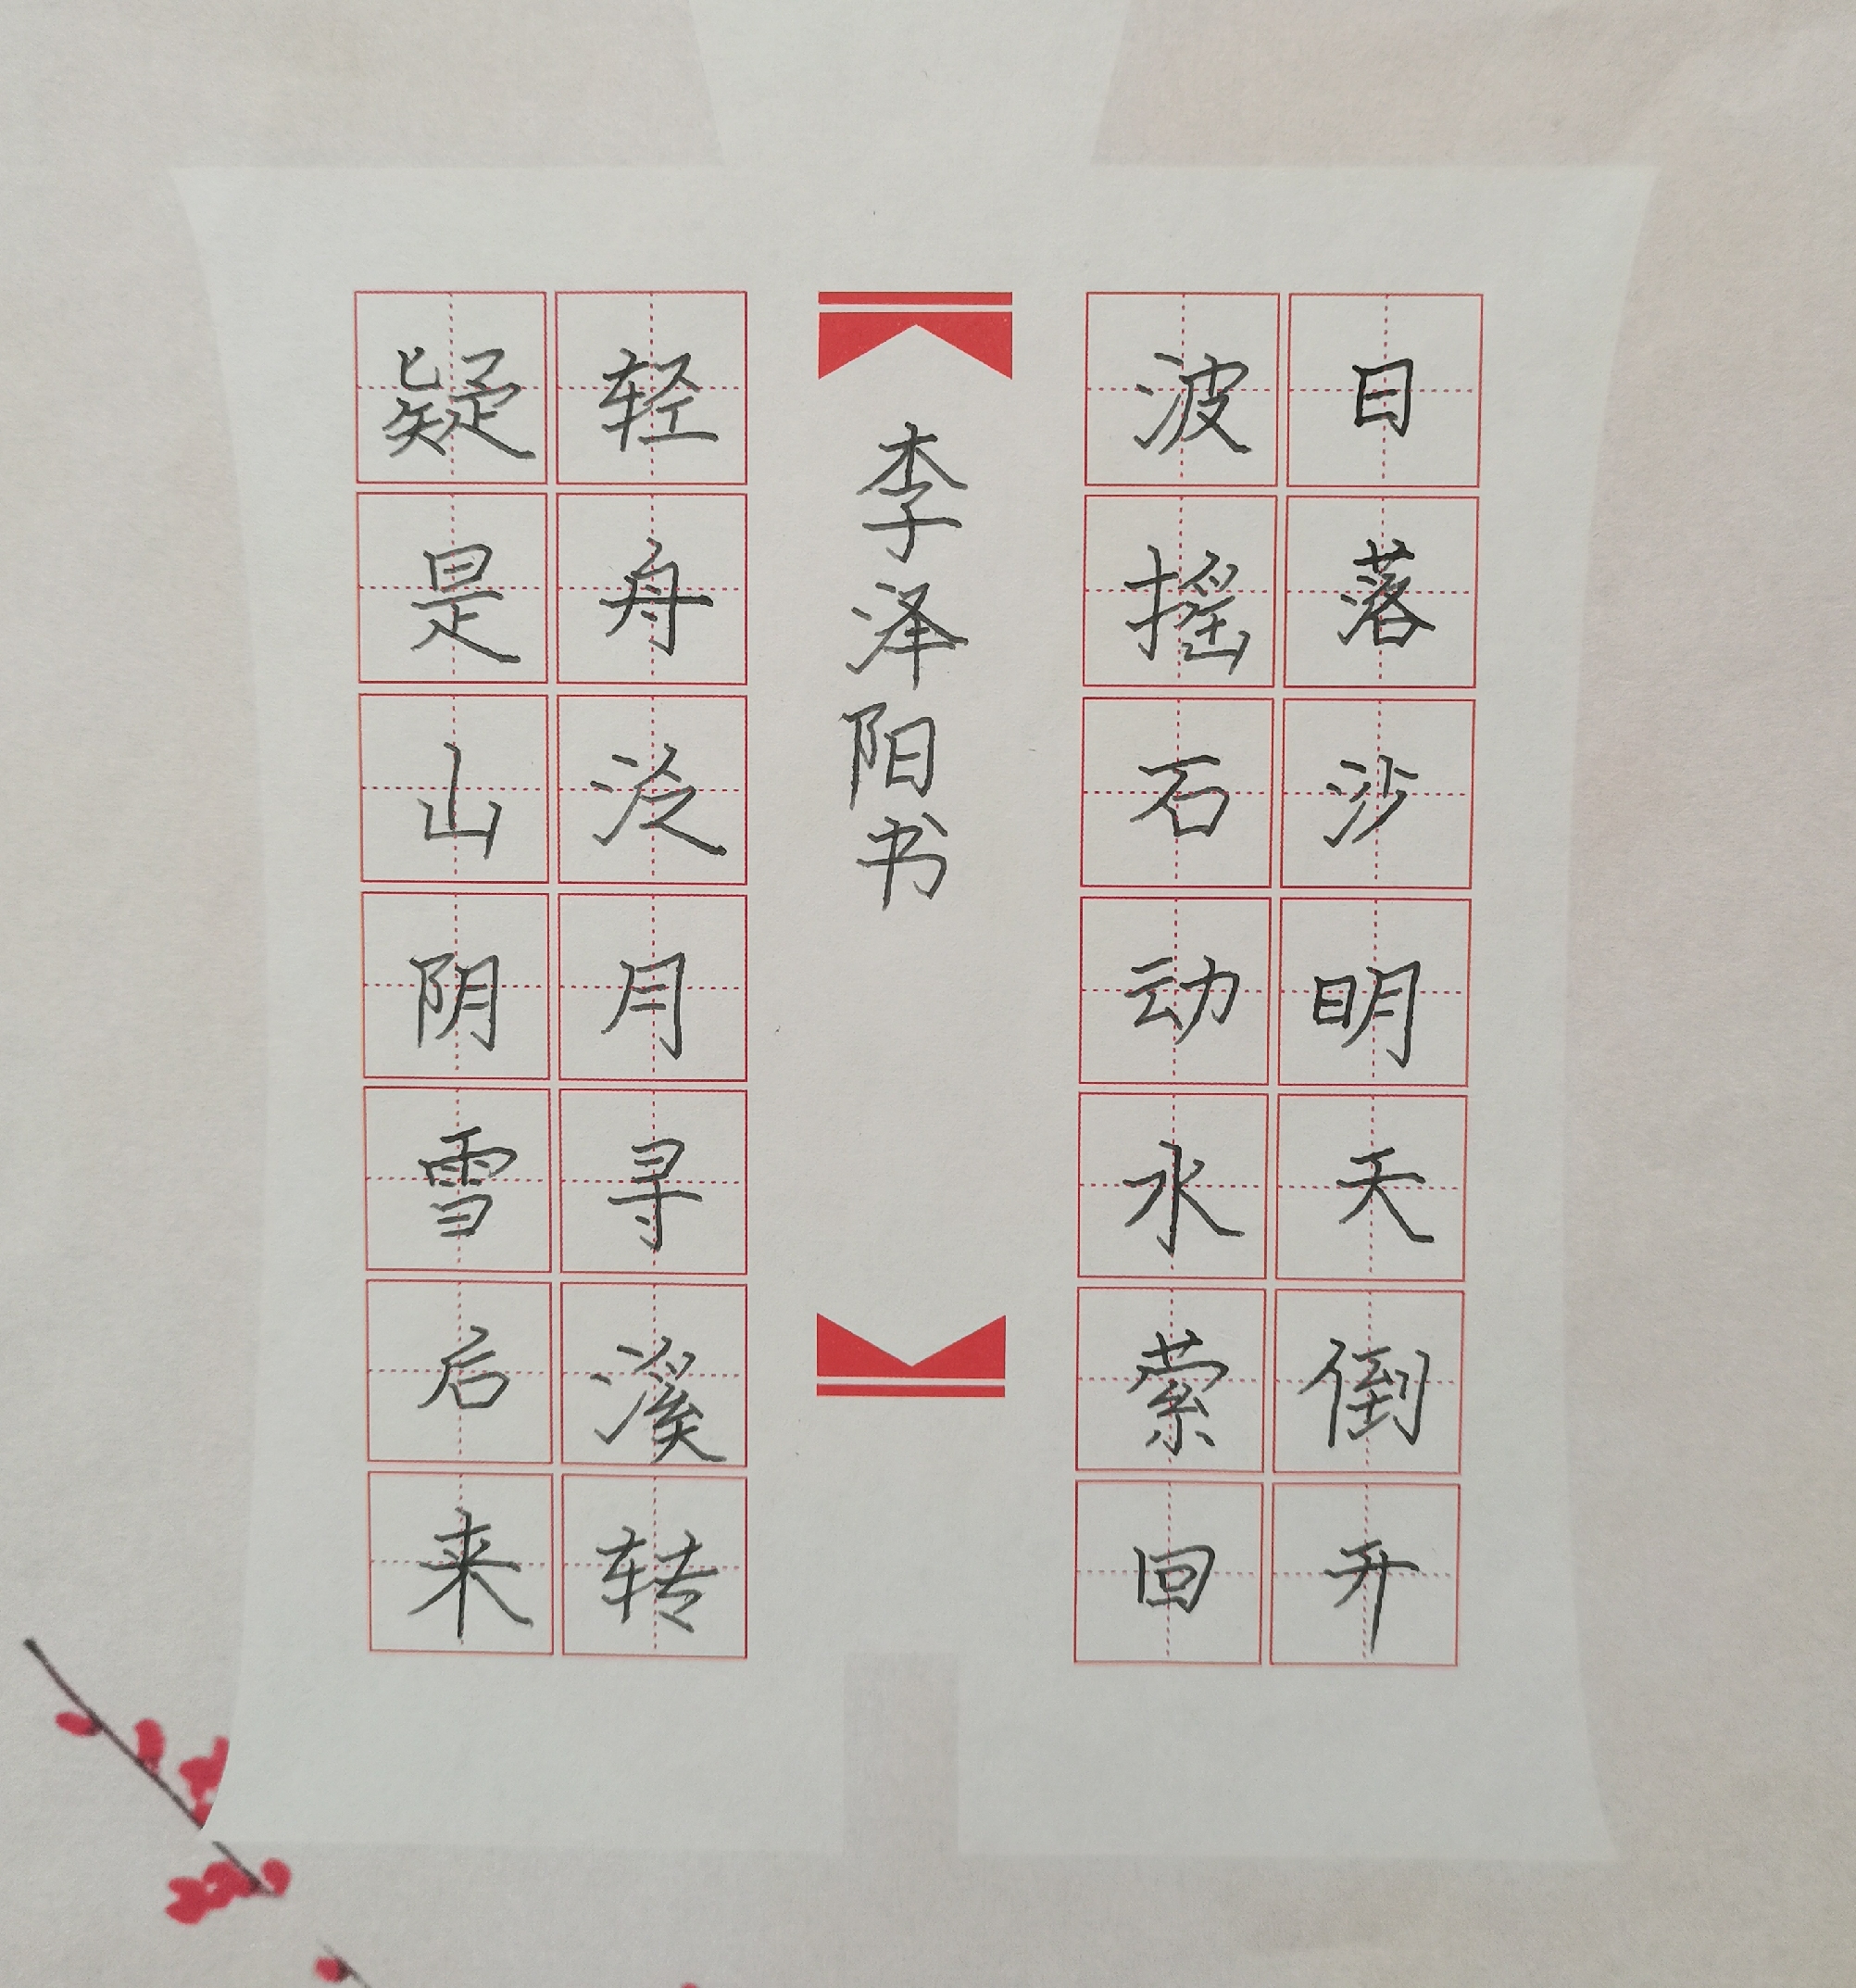 日落沙明天倒开
波摇石动水萦回
李泽阳书
轻舟泛月寻溪转
疑是山阴雪后来